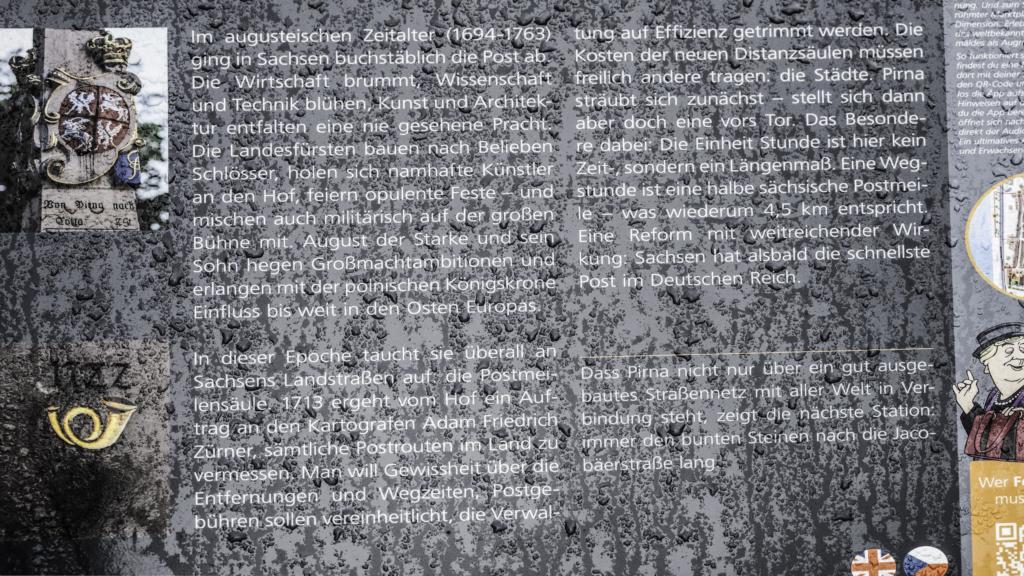 Im augusteischen Zeitalter (1694-1763)
ging in Sachsen buchstäblich die Post ab.
Die Wirtschaft brummt, Wissenschaft
und Technik blühen, Kunst und Architek-
tur entfalten eine nie gesehene Pracht.
Die Landesfürsten bauen nach Belieben
Schlösser, holen sich namhafte Künstler
an den Hof, feiern opulente Feste – und
mischen auch militärisch auf der großen
Bühne mit. August der Starke und sein
Sohn hegen Großmachtambitionen und
erlangen mit der polnischen Königskrone
Einfluss bis weit in den Osten Europas.
In dieser Epoche taucht sie überall an
Sachsens Landstraßen auf: die Postmei-
lensäule. 1713 ergeht vom Hof ein Auf-
trag an den Kartografen Adam Friedrich
Zürner, sämtliche Postrouten im Land zu
vermessen. Man will Gewissheit über die
Entfernungen und Wegzeiten, Postge-
bühren sollen vereinheitlicht, die Verwal-
tung auf Effizienz getrimmt werden. Die
Kosten der neuen Distanzsäulen müssen
freilich andere tragen: die Städte. Pirna
sträubt sich zunächst – stellt sich dann
aber doch eine vors Tor. Das Besonde-
re dabei: Die Einheit Stunde ist hier kein
Zeit-, sondern ein Längenmaß. Eine Weg-
stunde ist eine halbe sächsische Postmei-
le – was wiederum 4,5 km entspricht.
Eine Reform mit weitreichender Wir-
kung: Sachsen hat alsbald die schnellste
Post im Deutschen Reich.
Dass Pirna nicht nur über ein gut ausge-
bautes Straßennetz mit aller Welt in Ver-
bindung steht, zeigt die nächste Station:
immer den bunten Steinen nach die Jaco-
bäerstraße lang.
Von Pirna nach
1722
nung. Und zum
rühmter Marktpl
Dimension. Erleb
des weltbekannt
mäldes als Augm
So funktioniert s
findest du eine
dort mit deiner
den QR-Code un
los die App auf
Hinweisen auf
du die App ber
öffnet sich nach
direkt der Audio
Ein ultimatives
und Erwachsen
Wer Fo
mus